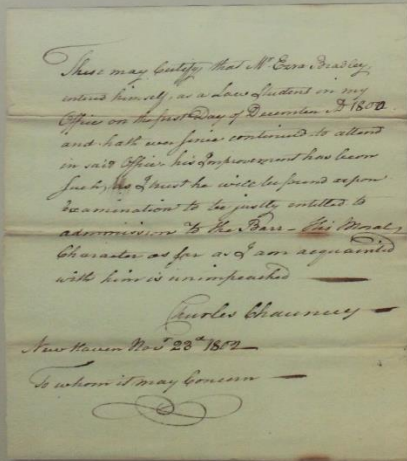 These may Certify that Mr. Ezra Bradley,
entered himself, as a Law Student in my
Office on the first Day of December AD 1800.
and hath ever since continued to attend
in said Office his Improvement has been
such, as I trust he will be found upon
Examination to be justly entitled to
admmission to the Barr — His Moral,
Character as far as I am acquainted
with him is unimpeached —
Charles Chauncey —
New Haven Novr 23d 1802 —
To whom it may Concern —